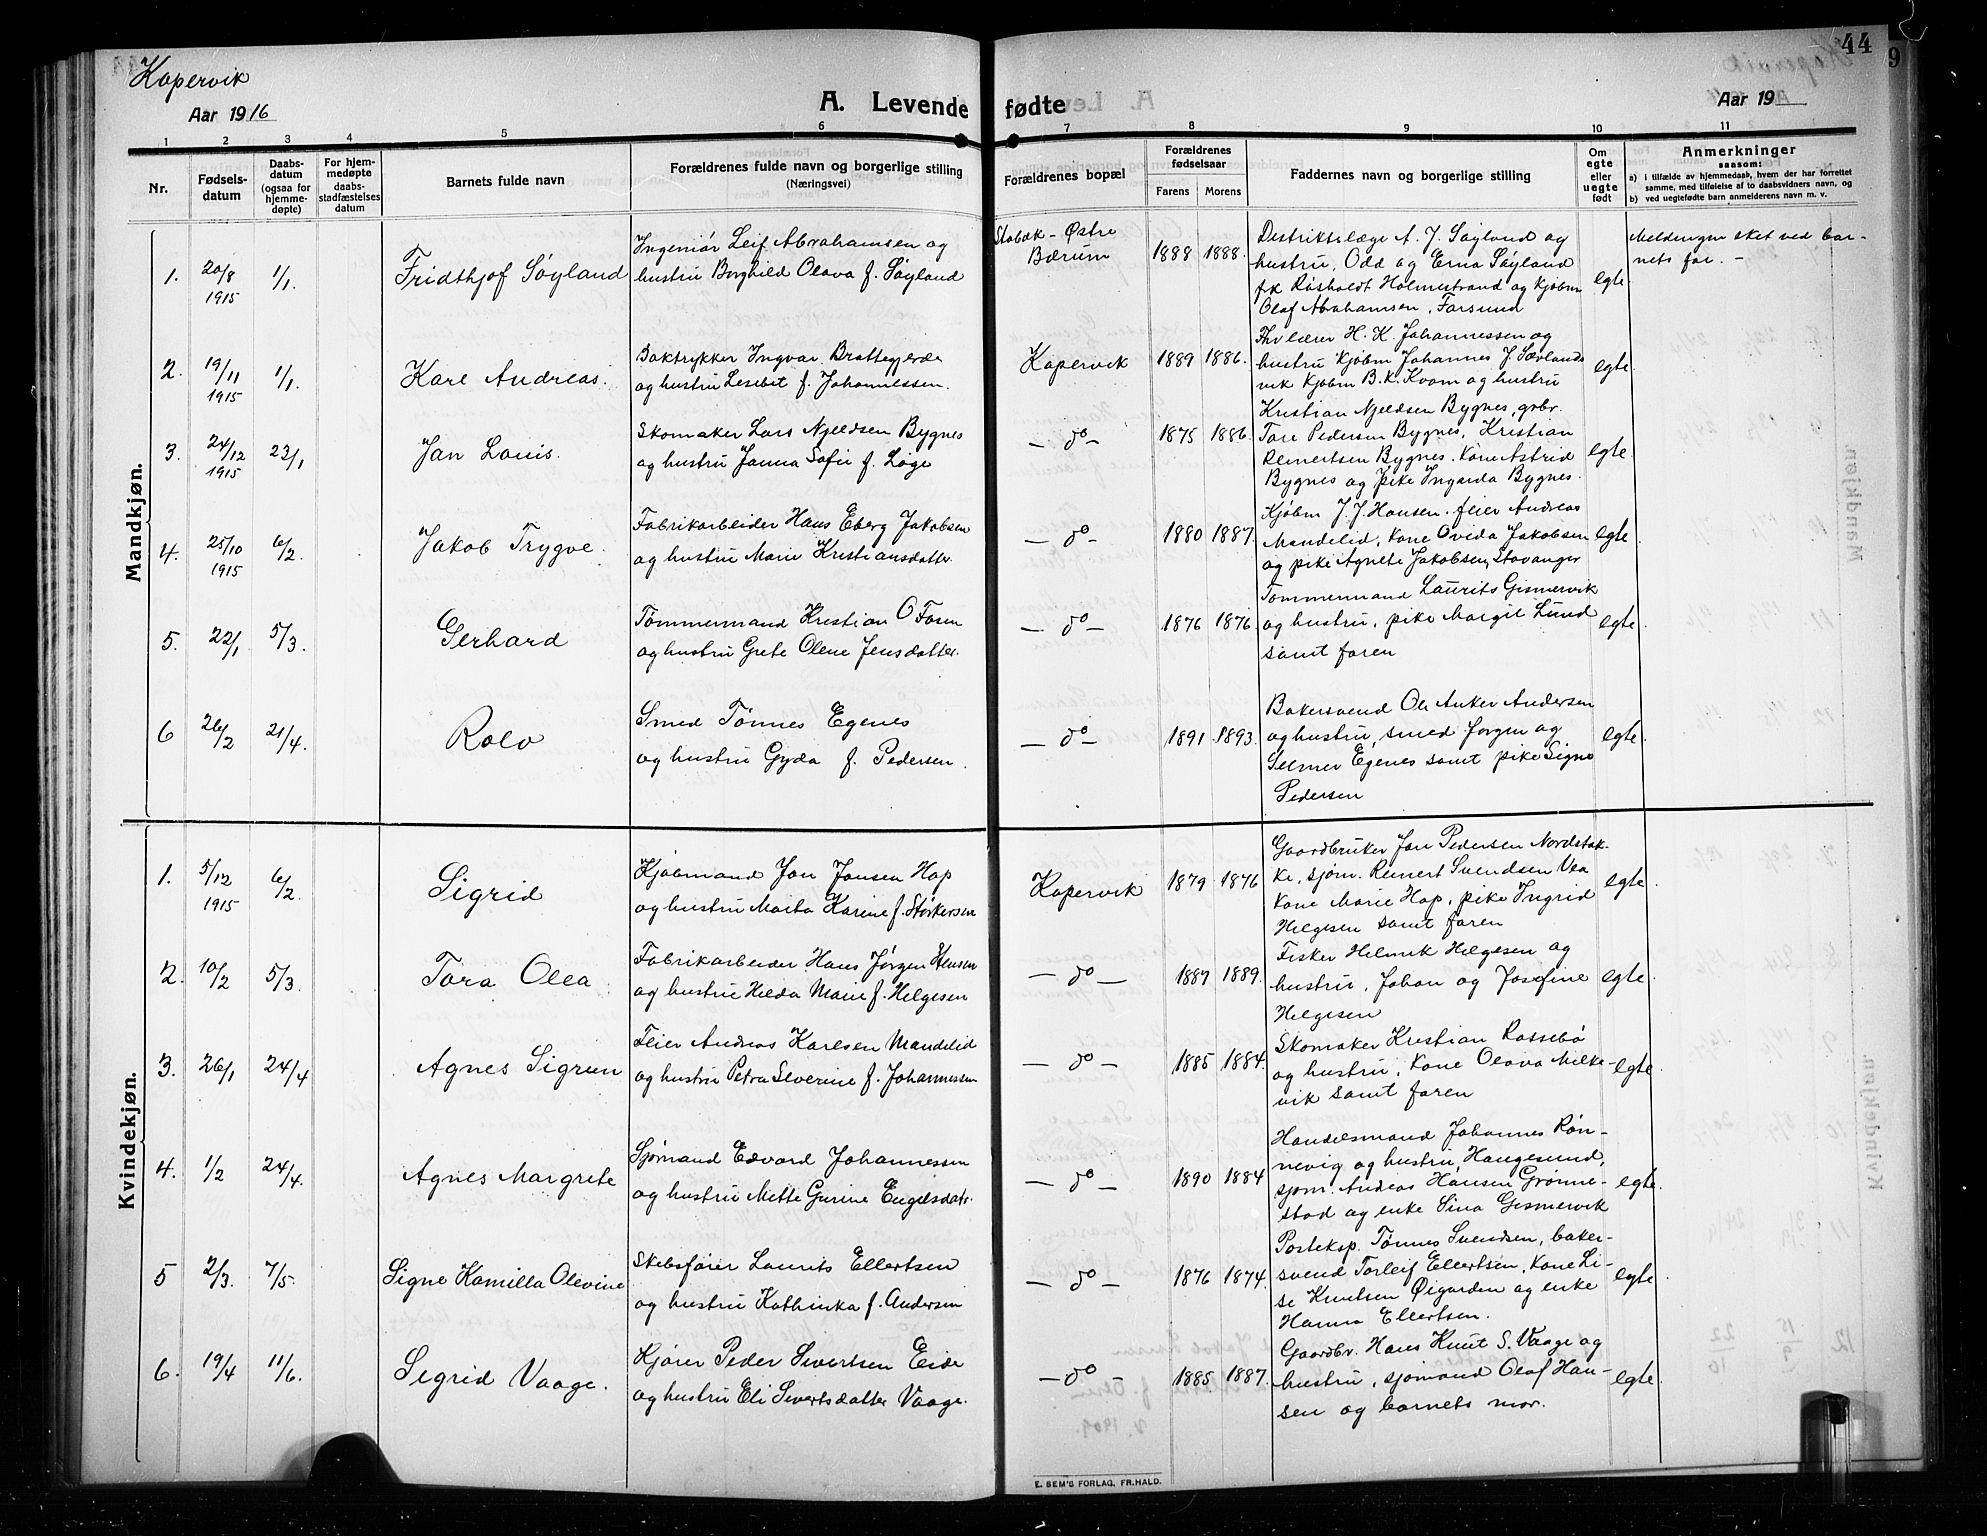 Kopervik
Aar 1916
A. Levende fødte
Aar 19
44
9
1 2 3 4 5 6 7 8 9 10 11
Nr.
Fødsels-
datum
Daabs-
datum
(ogsaa for
hjemme-
døpte)
For hjem-
medøpte
daabs-
stadfæstelses
datum
Barnets fulde navn
Forældrenes fulde navn og borgerlige stilling
(Næringsvei)
Forældrenes bopæl
Forældrenes
fødselsaar
Farens Morens
Faddernes navn og borgerlige stilling
Om
egte
eller
uegte
født
Anmerkninger
saasom:
a) i tilfælde av hjemmedaab, hvem der har forrettet
samme, med tilføielse af to daabsvidners navn, og
b) ved uegtefødte barn anmelderens navn m. v.
Mandkjøn.
1. 20/8 1915 1/1. Fridthjof Søyland
Ingeniør Leif Abrahamsen og
hustru Borghild Olava f. Søyland
Stabæk - Østre
Bærum
1888 1888.
Distriktslæge A. J. Søyland og
hustru, Odd og Erna Søyland
fk Røsholdt Holmestrand og kjøbm
Olaf Abrahamsen, Farsund
egte.
Meldingen sket ved bar-
nets far. -
2. 19/11 1915 1/1. Karl Andreas.
Boktrykker Ingvar Brattegjerde
og hustru Lisebet f. Johannessen.
Kopervik 1889 1886.
H. K. Johannessen og
hustru Kjøbm Johannes J. Sævlands
vik Kjøbm B. K. Kvam og hustru
egte.
3. 24/12 1915 23/1 Jan Louis.
Skomaker Lars Njeldsen Bygnes
og hustru Janna Sofie f. Løge
- do - 1875 1886.
Kristian Njeldsen Bygnes, grbr.
Tore Pedersen Bygnes, Kristian
Reinertsen Bygnes. Kone Astrid
Bygnes og pike Ingarda Bygnes.
egte.
4. 25/10 1915 6/2. Jakob Trygve.
Fabrikarbeider Hans Eberg Jakobsen
og hustru Marie Kristiansdattr.
- do - 1880 1887.
Kjøbm J. J. Hansen. feier Andreas
Mandelid, kone Ovida Jakobsen
og pike Agnete Jakobsen, Stavanger
egte.
5. 22/1 5/3. Gerhard
Tømmermand Kristian O Fosen
og hustru Grete Oline Jensdatter.
- do - 1876 1876.
Tømmermand Laurits Gismervik
og hustru, pike Margit Lund
samt faren
egte.
6 26/2 21/4. Rolv
Smed Tønnes Egenes
og hustru Gyda f. Pedersen.
- do - 1891 1893.
Bakersvend Ole Anker Andersen
og hustru, smed Jørgen og
Selmer Egenes samt pike Signe
Pedersen
egte.
Kvindekjøn.
1. 5/12 1915 6/2. Sigrid
Kjøbmand Jon Jonsen Hop
og hustru Marta Karine f. Størkersen
Kopervik 1879 1876
Gaardbruker Jon Pedersen Nordstok-
ke, sjøm. Reinert Svendsen Vea
kone Marie Hop, pike Ingrid
Helgesen samt faren
egte.
2. 10/2 5/3. Tora Olea
Fabrikarbeider Hans Jørgen Hensen
og hustru Helda Marie f. Helgesen
- do - 1887 1889.
Fisker Helmik Helgesen og
hustru, Johan og Josefine
Helgesen
egte.
3. 26/1 24/4 Agnes Sigrun
Feier Andreas Karlsen Mandelid
og hustru Petra Severine f. Johannessen
- do - 1885 1884.
Skomaker Kristian Rossebø
og hustru, kone Olava Milke-
vik samt faren
egte.
4. 1/2 24/4. Agnes Margrete
Sjømand Edvard Johannessen
og hustru Mette Gurine Engelsdatr.
- do - 1890 1884
Handelsmand Johannes Røn-
nevig og hustru, Haugesund,
sjøm. Andreas Hansen Grønne-
stad og enke Sina Gismervik
egte.
5 2/3. 7/5. Signe Kamilla Olevine
Skibsfører Laurits Ellertsen
og hustru Kathinka f. Andersen
- do - 1876 1874.
Posteksp. Tønnes Svendsen, baker-
svend Torleif Ellertsen, kone Li-
se Knutsen Øigarden og enke
Hanna Ellertsen.
egte.
6. 19/4 11/6. Sigrid Vaage.
Kjører Peder Sivertsen Eide
og hustru Eli Sivertsdatter Vaage.
- do - 1885. 1887.
Gaardbr. Hans Knut S. Vaage og
hustru, sjømand Olaf Han-
sen og barnets mor.
egte.
E. SEM'S FORLAG, FR.HALD.